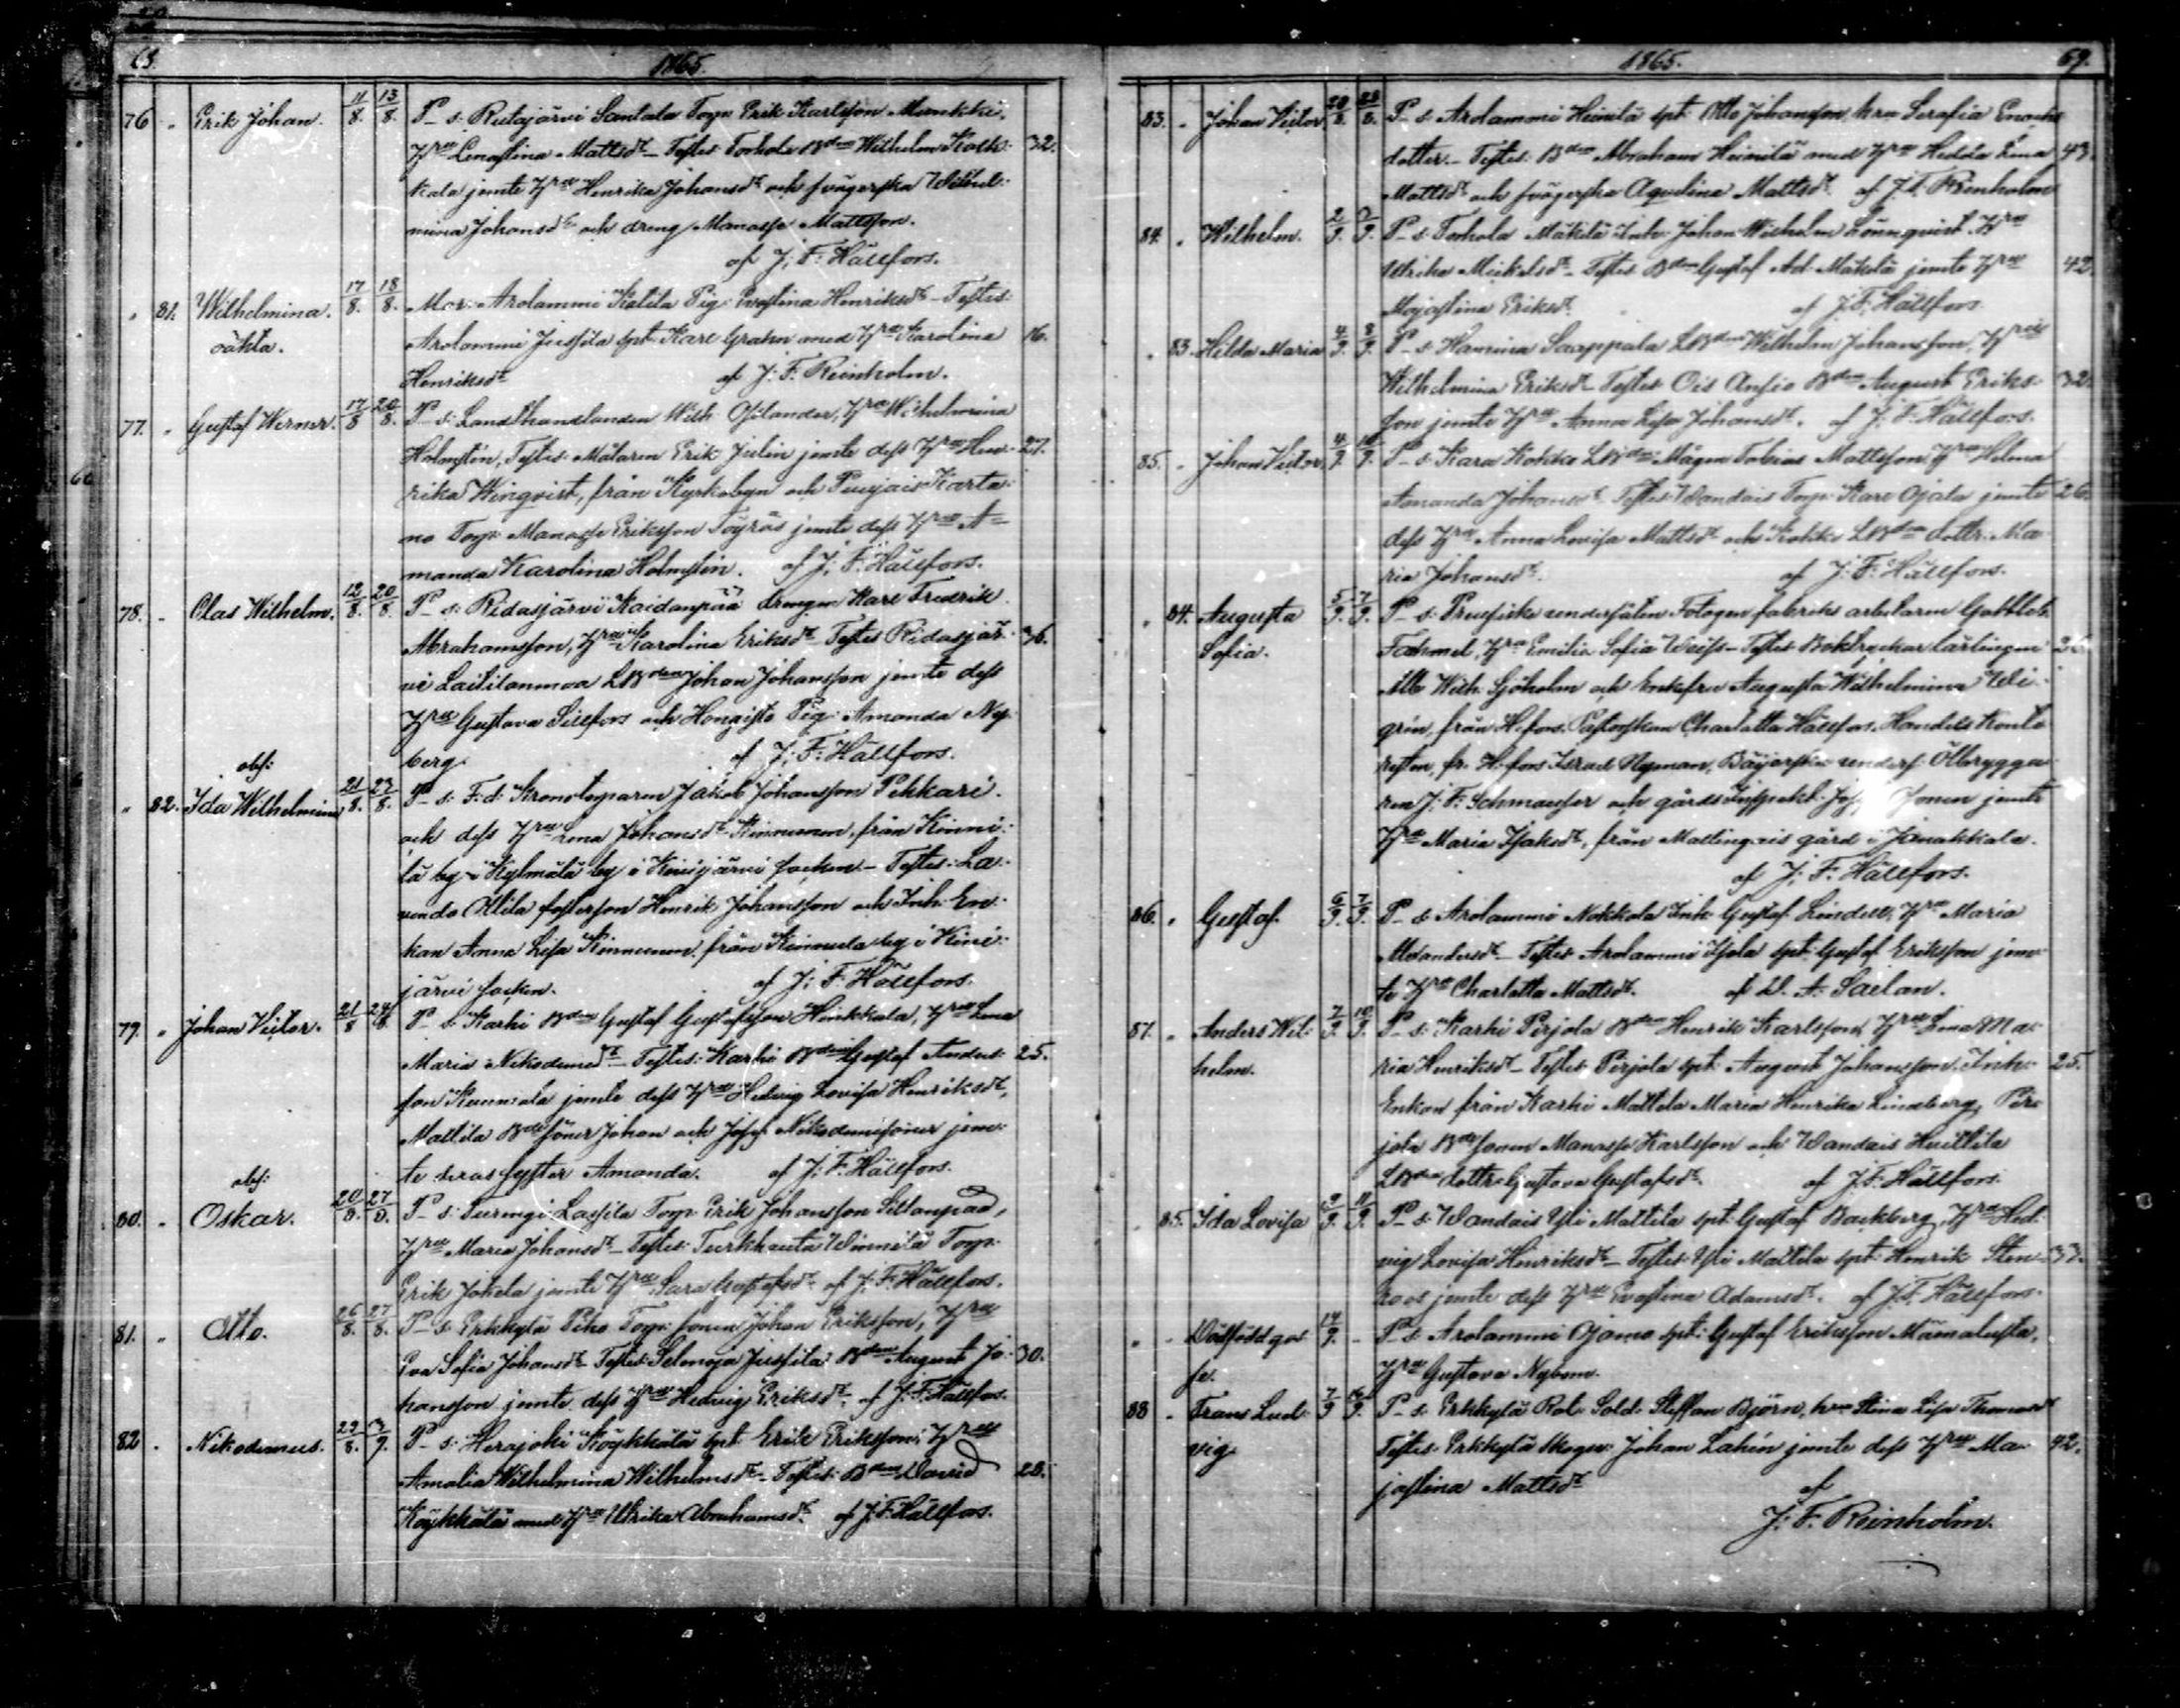 68. 1865.
76 " Erik Johan. 11/8. 13/8. P_ s. Ridasjärvi Santala Torp. Erik Karlsson Munkki,
Hru Lenastina Mattsdr_ Testes: Torhola Bden Wilhelm Kosk: 32.
kala jemte Hru Henrika Johansdr och svägerska Wilhel:
mina Johansdr och dreng Manasse Mattsson.
af J: F: Hällfors.
" 81. Wilhelmina. 17/8. 18/8. Mor: Arolammi Katila Pig. Evastina Henriksdr_ Testes:
oäkta. Arolammi Jussila spt. Karl Grahn med Hru Karolina 16.
Henriksdr af J: F. Reinholm.
77. " Gustaf Werner. 17/8 20/8. P_ s: Landthandlanden Wilh: Hru Wilhelmina
Holmstén, Testes: Målaren Erik Julin jemte dess Hru Hen: 27.
rika Winqvist, från Kyrkobyn och Karta:
no Torp. Manasse Eriksson Töyräs jemte dess Hru A=
manda Karolina Holmstén. af J: F: Hällfors.
78. " Clas Wilhelm. 12/8. 20/8. P_ s: Ridasjärvi Kaidanpää drengen Karl Fredrik
Abrahamsson, Hru Karolina Eriksdr_ Testes Ridasjär: 36.
vi LBden Johan Johansson jemte dess
Hru Gustava Sillfors och Hongisto Pig: Amanda Ny:
berg. af J: F: Hällfors.
obs:
" 82. Ida Wilhelmina 21/8. 23/8. P_ s: F.d: Kronotorparen Jakob Johansson Pekkari
och dess Hru Lena Johansdr Kinnunen, från Kinni:
lä by i Kylmälä by i socken_ Testes: La:
Ollila fosterson Henrik Johansson och Inh: En:
kan Anna Lisa Kinnunen från Kinnula by i Kivi:
järvi socken. af J: F: Hällfors.
79. " Johan Victor. 21/8 24/8. P_ s: Karhi Bden Gustaf Gustafsson Hinkkala, Hru Lena
Maria Nikodemidr_ Testes: Karhi Bden Gustaf Anders: 25.
son jemte dess Hru Hedvig Lovisa Henriksdr,
Mattila Bde söner Johan och Josef Nikodemisöner jem:
te deras syster Amanda. af J: F: Hällfors.
obs:
80. " Oskar. 20/8. 27/8. P_ s: Lassila Torp. Erik Johansson
Hru Maria Johansdr_ Testes: Turkhauta Winnilä Torp.
Erik Jokela jemte Hru Sara Gustafsdr af J: F: Hällfors.
81. " Otto. 26/8. 27/8. P_ s: Erkkylä Piho Torp. sonen Johan Eriksson, Hru
Eva Sofia Johansdr_ Testes: Selänoja Jussila Bden August Jo: 30.
hansson jemte dess Hru Hedvig Eriksdr. af J: F: Hällfors.
82. " Nikodemus. 29/8. 3/9. P_ s: Herajoki Köykkälä spt. Erik Eriksson, Hru
Amalia Wilhelmina Wilhelmsdr_ Testes: Bden David 28.
Köykkälä med Hru Ulrika Abrahamsdr. af J: F: Hällfors.
1865. 69.
83. " Johan Victor 20/8. 28/8. P_ s. Arolammi Heinilä spt. Otto Johansson, hru Serafia Enochs
dotter._ Testes: Bden Abraham Heinilä med Hru Hedda Lena 43.
Mattsdr och svägerska Aqvilina Mattsdr. af J. F. Reinholm
84. " Wilhelm. 2/9. 7/9. P_ s. Torhola Mäkilä Inh: Johan Wilhelm Lönnqvist, Hru
Ulrika Mickelsdr_ Testes: Bden Gustaf Ad. Mäkilä jemte Hru 42.
Majastina Eriksdr. af J: F. Hällfors.
" 83. Hilda Maria 4/9. 8/9. P_ s. Hamina Saappala LBden Wilhelm Johansson, Hru
Wilhelmina Eriksdr_ Testes Ois Ansio Bden August Eriks: 32.
son jemte Hru Anna Lisa Johansdr. af J: F: Hällfors.
85. " Johan Victor 4/9. 10/9. P_ s. Kara Kokko LBden Mågen Tobias Mattsson, Hru Helena
Amanda Johansdr Testes: Wandais Torp. Karl Ojala jemte 26.
dess Hru Anna Lovisa Mattsdr och Kokko LBden dottr. Ma:
ria Johansdr. af J: F: Hällfors.
" 84. Augusta 5/9. 7/9. P_ s. Preussiske undersåten Fotogen fabriks arbetaren Gottlieb
Sofia. Fahmel, Hru Emilia Sofia Weiss_ Testes: Boktryckar lärlingen
Alb. Wilh. Sjöholm och Enkefru Augusta Wilhelmina Wi:
grén, från H:fors. Pastorskan Charlotta Hällfors, Handels Konto
risten, fr. H:fors Israel Nyman, Bayerske unders. Ölbrygga
ren J: F: Schmausser och gårds Inspekt. Jos. jemte
Hru Maria Isaksdr, från Mallinqvis gård i Janakkala.
af J: F: Hällfors.
86. " Gustaf. 6/9. 7/9. P_ s. Arolammi Nokkola Inh: Gustaf Lindell, Hru Maria
Alexandersdr_ Testes Arolammi Isola spt. Gustaf Eriksson jem:
te Hru Charlotta Mattsdr. af D. A. Sailan.
87. " Anders Wil: 7/9. 10/9. P_ s: Karhi Pirjola Bden Henrik Karlsson, Hru Lena Ma:
helm. ria Henriksdr_ Testes Pirjola spt. August Johansson. Inh: 25.
Enkan från Karhi Mattila Maria Henrika Lindberg, Pir:
jola Bde sonen Manasse Karlsson och Wandais Huittila
LBden dottr. Gustava Gustafsdr. af J. F. Hällfors.
" 85. Ida Lovisa 9/9. 11/9. P_ s. Wandais Yli Mattila spt. Gustaf Backberg, Hru Hed:
vig Lovisa Henriksdr_ Testes Yli Mattila spt. Henrik Sten: 33.
roos jemte dess Hru Evastina Adamsdr. af J. F. Hällfors.
" " Dödfödd gos: 14/9. _ P_ s. Arolammi Ojamo spt: Gustaf Eriksson
se. Hru Gustava Nybom.
88 " Frans Lud: 7/9 16/9. P_ s. Erkkylä Rot. Sold. Steffan Björn, hru Stina Lisa Thomasdr
vig. Testes: Erkkylä Skogv. Johan Lahén jemte dess Hru Ma: 42.
jastina Mattsdr af
J: F. Reinholm.